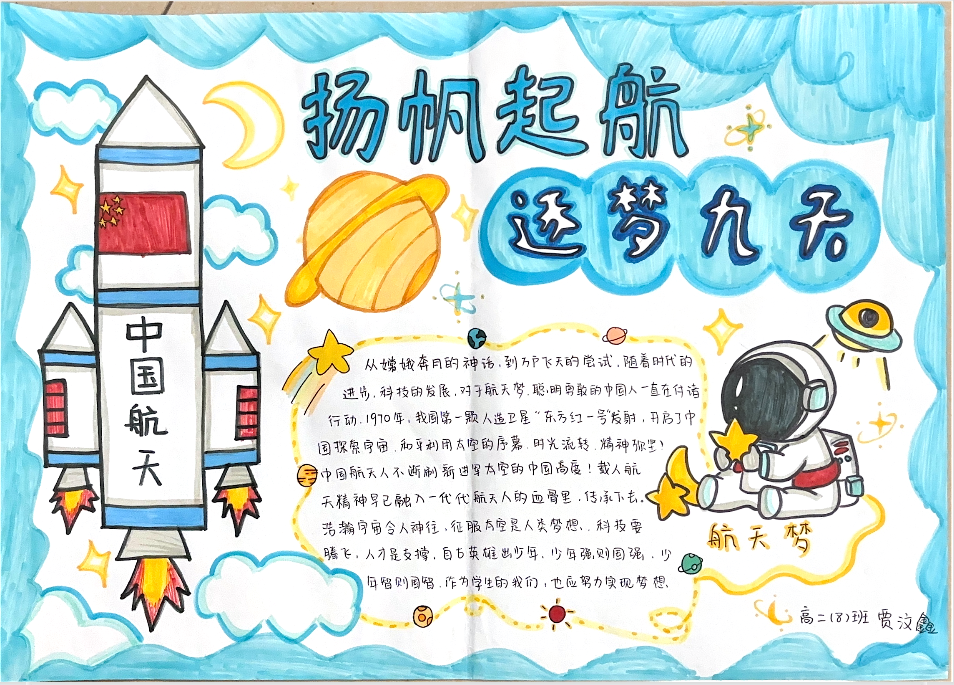 扬帆起航
逐梦九天
中国航天
从嫦娥奔月的神话,到万户飞天的尝试,随着时代的
进步,科技的发展,对于航天梦,聪明勇敢的中国人一直在付诸
行动.1970年,我国第一颗人造卫星“东方红一号”发射,开启了中
国探索宇宙、和平利用太空的序幕.时光流转、精神弥坚!
中国航天人不断刷新进军太空的中国高度!载人航
天精神早已融入一代代航天人的血骨里,传承下去。
浩瀚宇宙令人神往,征服太空是人类梦想、科技要
腾飞,人才是支撑,自古英雄出少年,少年强则国强,少
年智则国智.作为学生的我们,也应努力实现梦想.
航天梦
高二(8)班 贾汶鑫